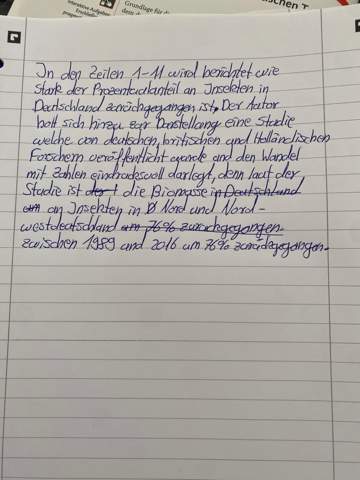 Interaktive Aufgaben
Grundlage für d
In den Zeilen 1-11 wird berichtet wie
stark der Prozentualanteil an Insekten in
Deutschland zurückgegangen ist. Der Autor
hatt sich hierzu zur Darstellung eine Studie
welche von deutschen, britischen und Holländischen
Forschern veröffentlicht wurde und den Wandel
mit Zahlen eindrucksvoll darlegt, denn laut der
Studie ist die Biomasse in Deutschland
um an Insekten in Nord und Nord-
westdeutschland um 76% zurückgegangen.
zwischen 1989 und 2016 um 76% zurückgegangen.